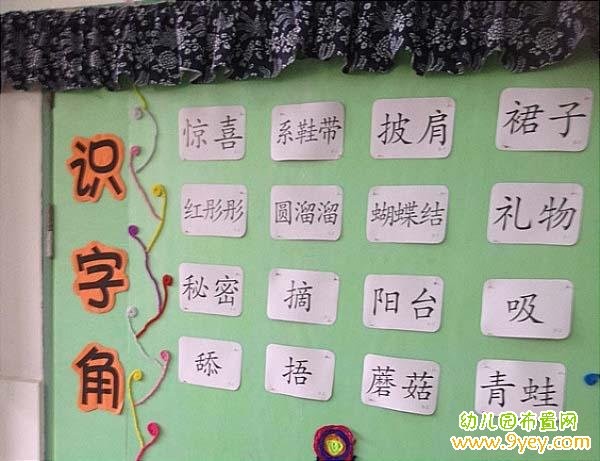 识字角
惊喜 系鞋带 披肩 裙子
红彤彤 圆溜溜 蝴蝶结 礼物
秘密 摘 阳台 吸
舔 捂 蘑菇 青蛙
幼儿园布置网
www.9yey.com